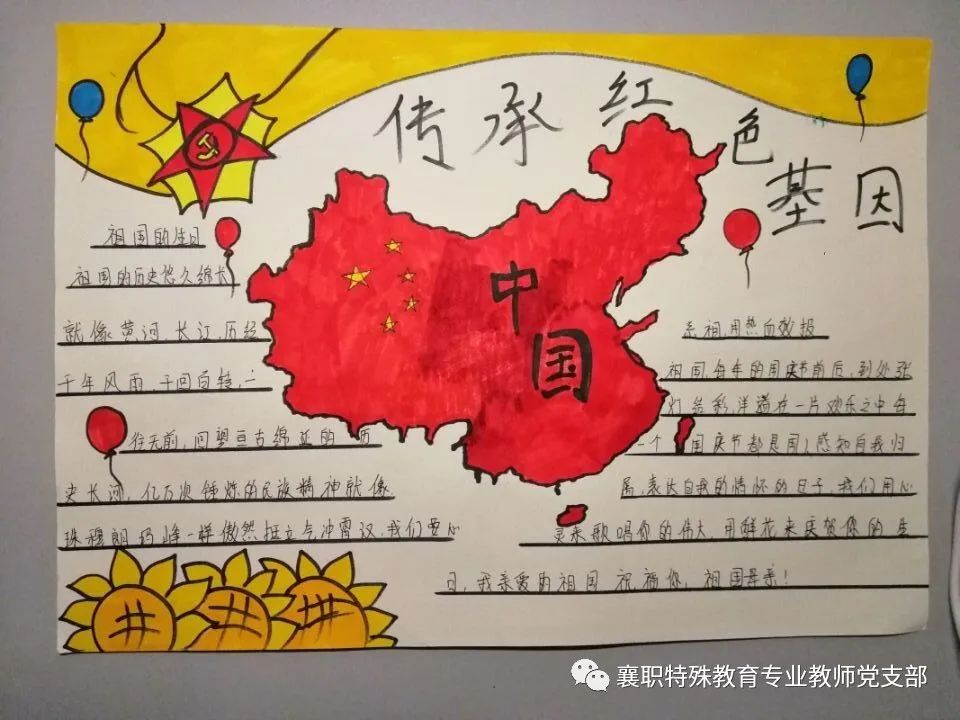 传承红色基因
中国
祖国的生日
祖国的历史悠久绵长
就像黄河、长江,历经
千年风雨,千回百转,一
往无前,回望亘古绵延的历
史长河,亿万次锤炼的民族精神就像
珠穆朗玛峰一样傲然挺立气冲霄汉,我们要心
系祖,用热血效报
祖国,每年的国庆节前后,到处张
灯结彩,洋溢在一片欢乐之中每
一个国庆节都是国人感知自我归
属,表达自我的情怀的日子,我们用心
灵来歌唱你的伟大,用鲜花来庆贺您的生
日,我亲爱的祖国祝福你,祖国母亲!
襄职特殊教育专业教师党支部